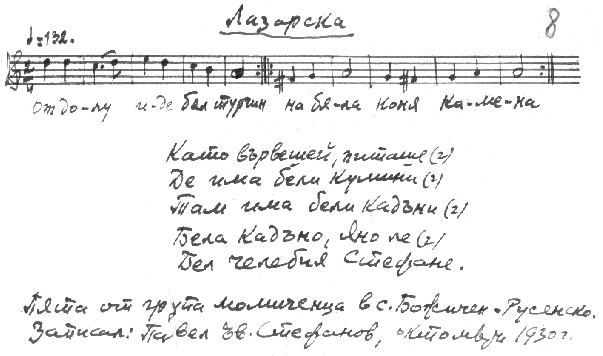 Лазарска
8
♩=132.
отдо-лу и-де бял турчин на бя-ла коня ка-ме-на
Като вървешей, питаше (2)
Де има бели Кулини (2)
Там има бели Кадъни (2)
Бела Кадъно, Яно ле (2)
Бел челебия Стефане.
Пята от група момиченца в с. Божичен-Русенско.
Записал: Павел Хв. Стефанов, октомври 1930 г.